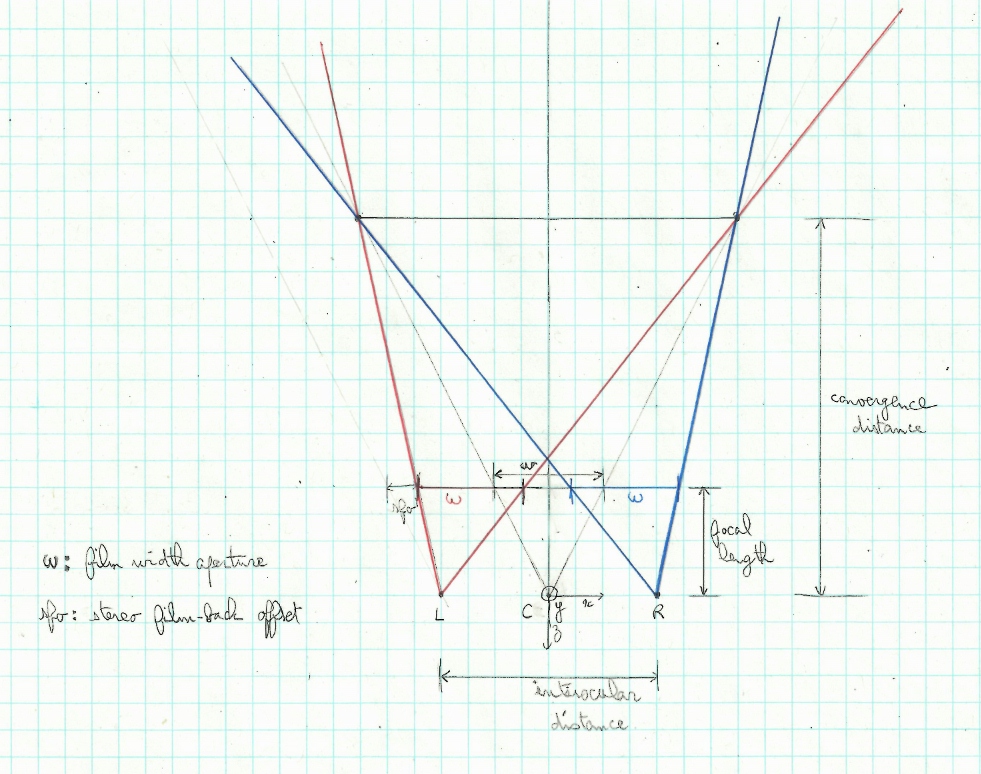 w
convergence
distance
sfo
w
w
focal
length
w: film width aperture
sfo: stereo film-back offset
L
C
y
x
R
z
interocular
distance